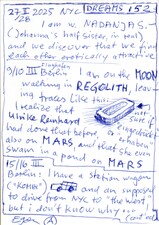 27-II 2025 NYC DREAMS 152
/28
I am w. NADANJA S.
(Johanna's half sister, in tool)
and we discover that we find
each other erotically attractive
9/10 III Berlin I am on the MOON
walking in REGOLITH, leav-
ing traces like this
I realize that
Ulrike Reinhard
had done that before
also on MARS and that she even
swam in a pond on MARS
15/16 III
Berlin: I have a station wagon
("KOMBI") and am supposed
to drive from NYC to "the west"
but i don't know why...